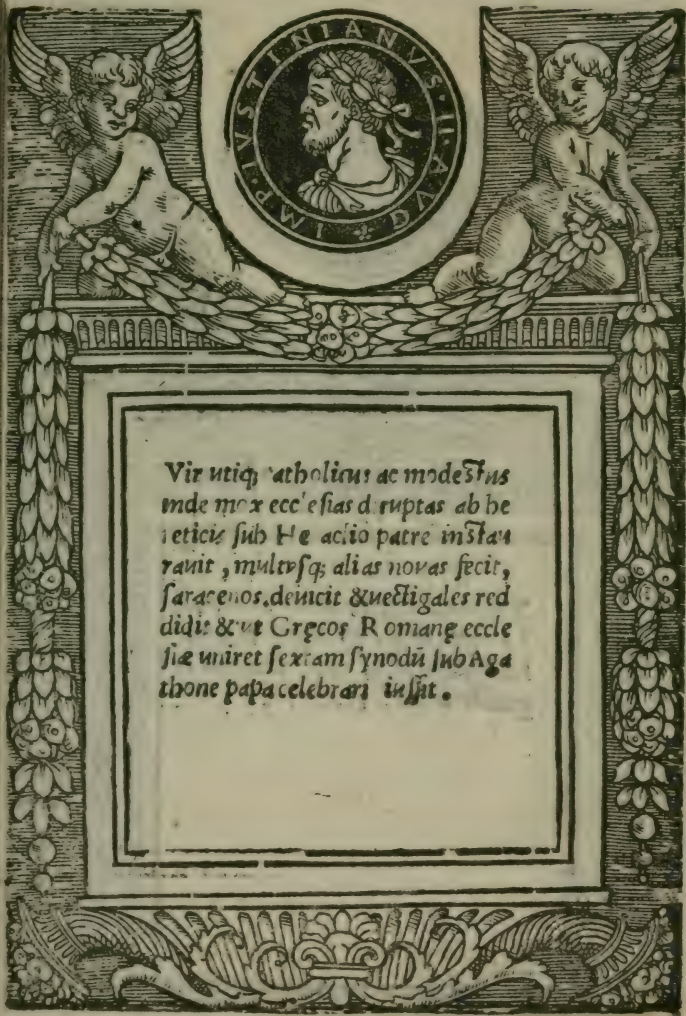 IMP · IVSTINIANVS · II · AVG
Vir utiq; catholicus ac modestus
inde mox ecclesias diruptas ab he
reticis sub Heraclio patre instau
rauit, multasq; alias nouas fecit,
saracenos deuicit & uectigales red
didit & ut Gręcos Romanę eccle
siæ uniret sextam synodũ sub Aga
thone papa celebrari iussit.